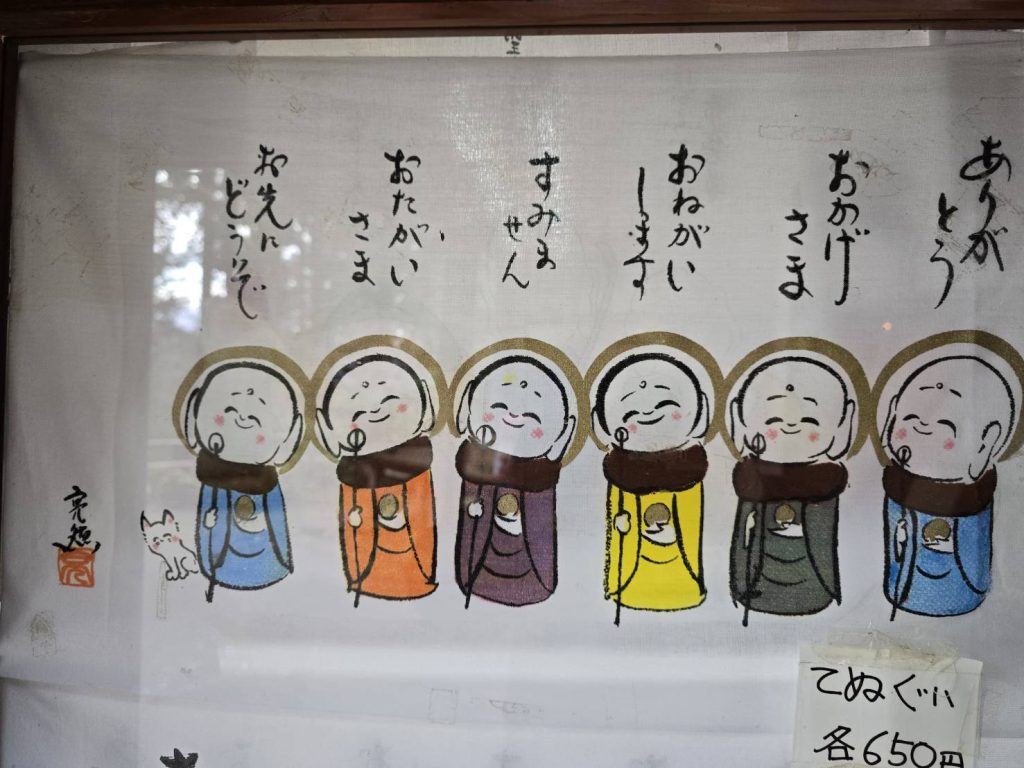 ありが
とう
おかげ
さま
おねがい
します
すみま
せん
おたがい
さま
お先に
どうぞ
てぬぐい
各650円